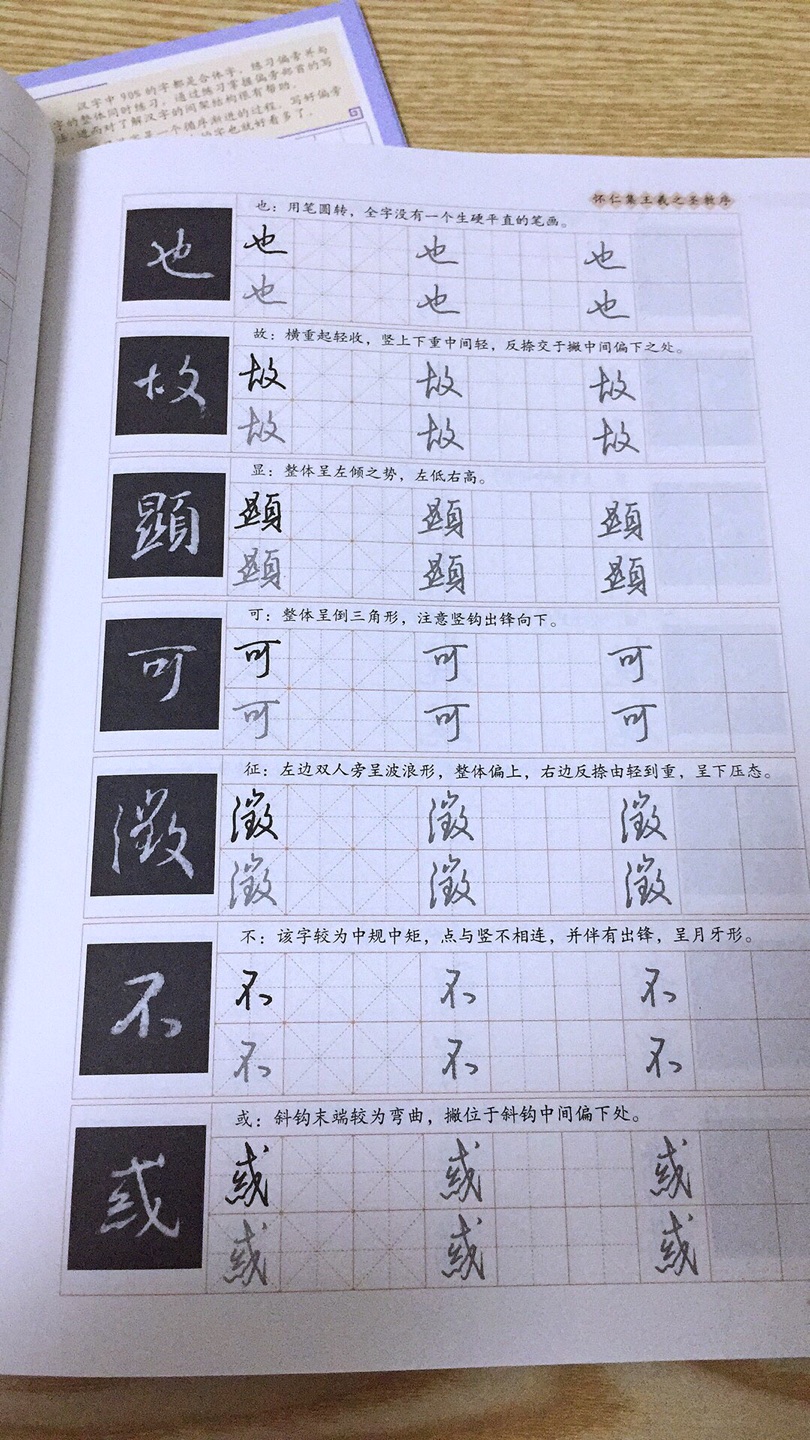 汉字中90%的字都是合体字，练习偏旁并与
字的整体同时练习，通过练习掌握偏旁部首的写
法，进而对了解汉字的间架结构很有帮助。
字是一个循序渐进的过程，写好偏旁
的字也就好看多了。
怀仁集王羲之圣教序
也：用笔圆转，全字没有一个生硬平直的笔画。
也 也 也 也
也 也 也
故：横重起轻收，竖上下重中间轻，反捺交于撇中间偏下之处。
故 故 故 故
故 故 故
显：整体呈左倾之势，左低右高。
顯 顯 顯 顯
顯 顯 顯
可：整体呈倒三角形，注意竖钩出锋向下。
可 可 可 可
可 可 可
征：左边双人旁呈波浪形，整体偏上，右边反捺由轻到重，呈下压态。
徵 徵 徵 徵
徵 徵 徵
不：该字较为中规中矩，点与竖不相连，并伴有出锋，呈月牙形。
不 不 不 不
不 不 不
或：斜钩末端较为弯曲，撇位于斜钩中间偏下处。
或 或 或 或
或 或 或